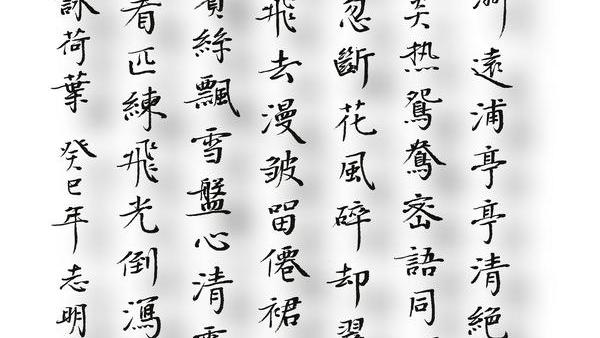 遠浦亭亭清絕
热鴛鴦宻語同
忽斷花風碎却翠
飛去漫皺留僊裙
絲飄雪盤心清
看匹練飛光倒瀉
詠荷葉 癸巳年志明